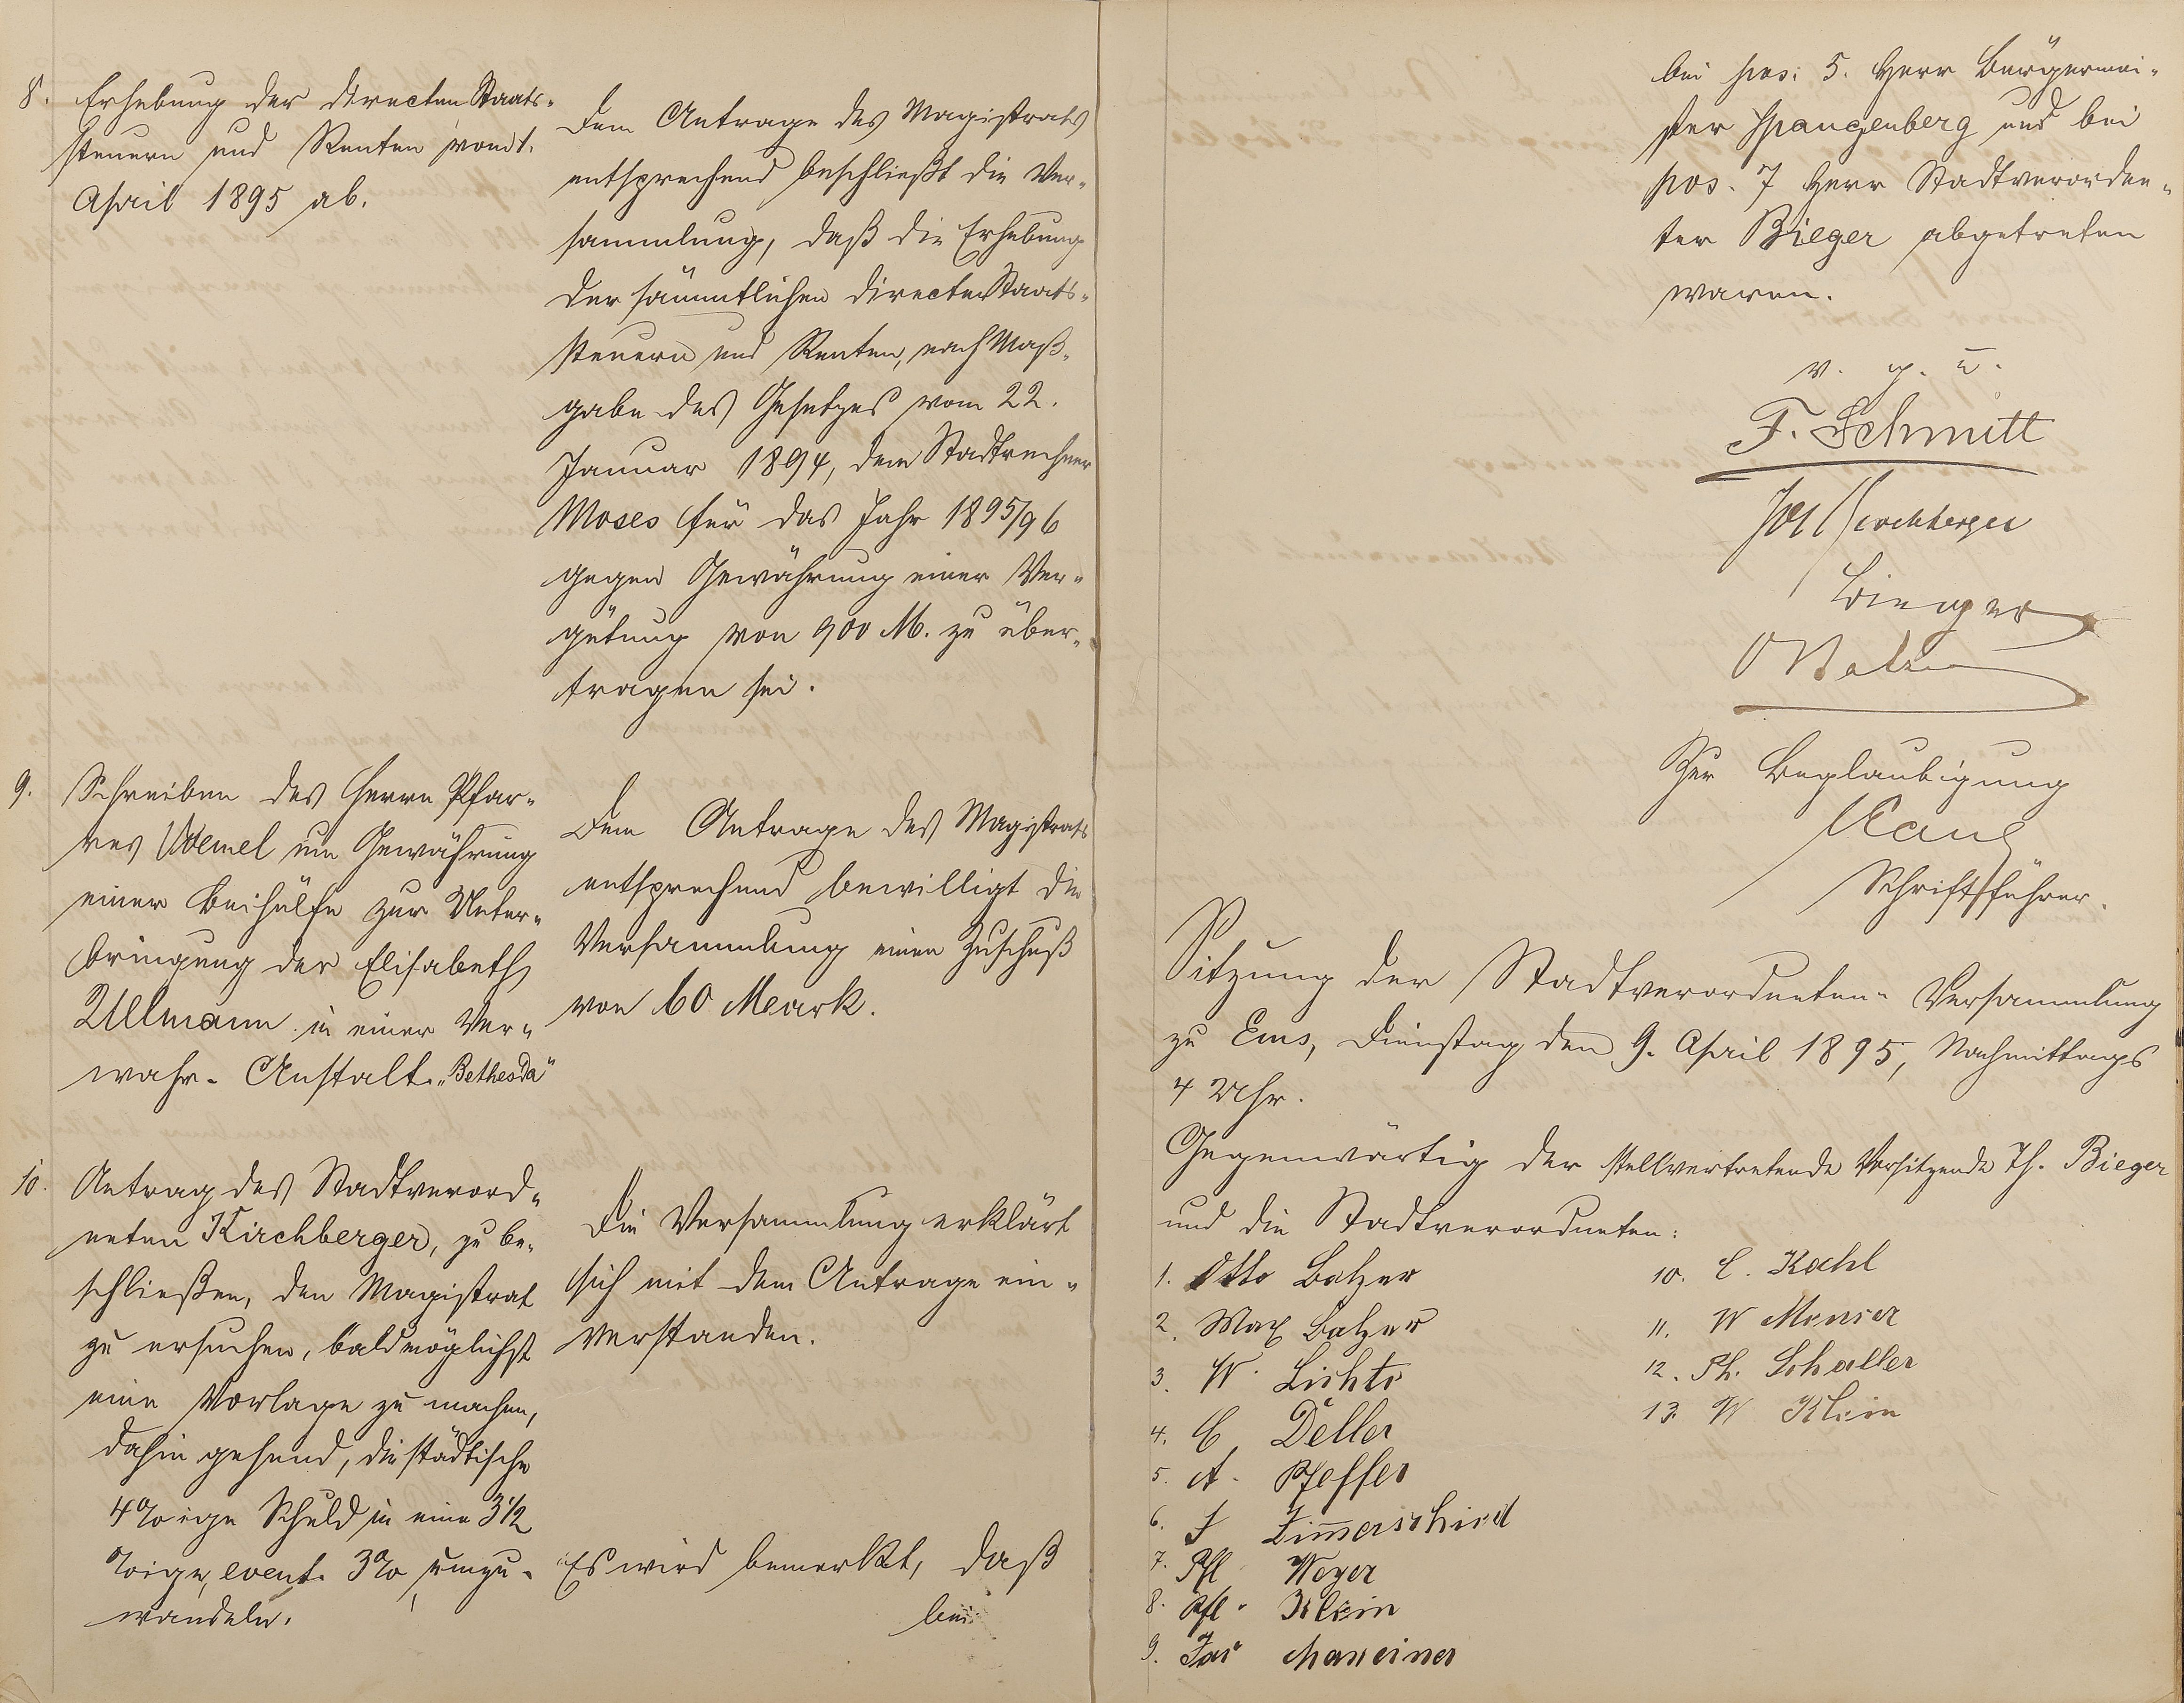 8. Erhebung der directen Staats-
steuern und Renten vom 1.
April 1895 ab.
Dem Antrage des Magistrats
entsprechend beschließt die Ver-
sammlung, daß die Erhebung
der sämmtlichen directen Staats-
steuern und Renten, nach Maß-
gabe des Gesetzes vom 22.
Januar 1894, dem Stadtrechner
Moses für das Jahr 1895/96
gegen Gewährung einer Ver-
gütung von 900 M. zu über-
tragen sei.
9. Schreiben des Herrn Pfar-
rers um Gewährung
einer Beihülfe zur Unter-
bringung der Elisabeth
Ullmann in einer Ver-
wahr-Anstalt „Bethesda"
Dem Antrage des Magistrats
entsprechend bewilligt die
Versammlung einen Zuschuß
von 60 Mark.
10. Antrag des Stadtverord-
neten Kirchberger, zu be-
schließen, den Magistrat
zu ersuchen, baldmöglichst
eine Vorlage zu machen,
dahin gehend, die städtische
4%ige Schuld in eine 3½
%ige, event. 3% umzu-
wandeln.
Die Versammlung erklärt
sich mit dem Antrage ein-
verstanden.
Es wird bemerkt, daß
bei
bei pos. 5. Herr Bürgermei-
ster Spangenberg und bei
pos. 7 Herr Stadtverordne-
ter Bieger abgetreten
waren.
v. g. u.
F. Schmitt
Jos Kirchberger
Bieger
O Balzer
Zur Beglaubigung
Kaul
Schriftführer.
Sitzung der Stadtverordneten-Versammlung
zu Ems, Dienstag den 9. April 1895, Nachmittags
4 Uhr.
Gegenwärtig der stellvertretende Vorsitzende Th. Bieger
und die Stadtverordneten:
1. Otto Balzer
2. Max Balzer
3. W. Lichti
4. C Deller
5. A. Pfeffer
6. J Zim̄erschied
7. Phl Weyer
8. Phl. Klein
9. Jos
10. C. Kahl
11. W
12. Ph. Schaller
13. W Klein